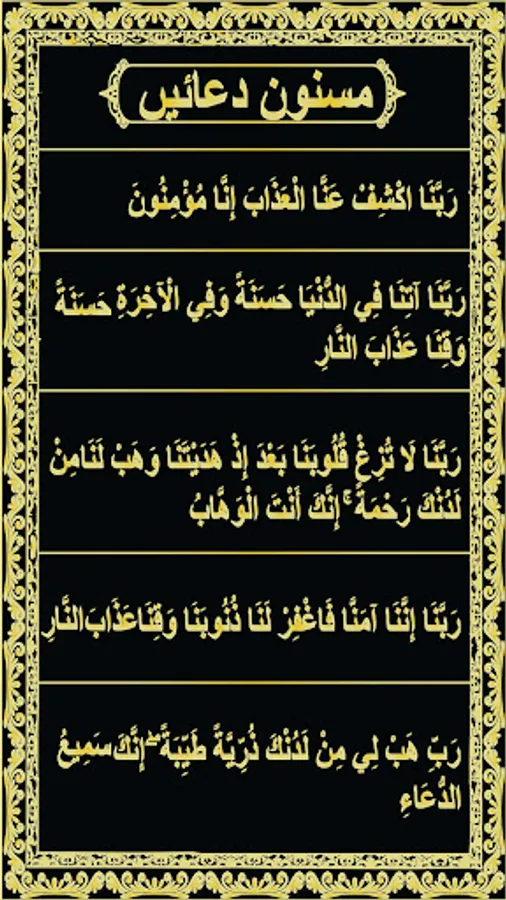 مسنون دعائیں
رَبَّنَا اكْشِفْ عَنَّا الْعَذَابَ إِنَّا مُؤْمِنُونَ
رَبَّنَا آتِنَا فِي الدُّنْيَا حَسَنَةً وَفِي الْآخِرَةِ حَسَنَةً
وَقِنَا عَذَابَ النَّارِ
رَبَّنَا لَا تُزِغْ قُلُوبَنَا بَعْدَ إِذْ هَدَيْتَنَا وَهَبْ لَنَا مِنْ
لَدُنْكَ رَحْمَةً ۚ إِنَّكَ أَنْتَ الْوَهَّابُ
رَبَّنَا إِنَّنَا آمَنَّا فَاغْفِرْ لَنَا ذُنُوبَنَا وَقِنَا عَذَابَ النَّارِ
رَبِّ هَبْ لِي مِنْ لَدُنْكَ ذُرِّيَّةً طَيِّبَةً ۖ إِنَّكَ سَمِيعُ
الدُّعَاءِ